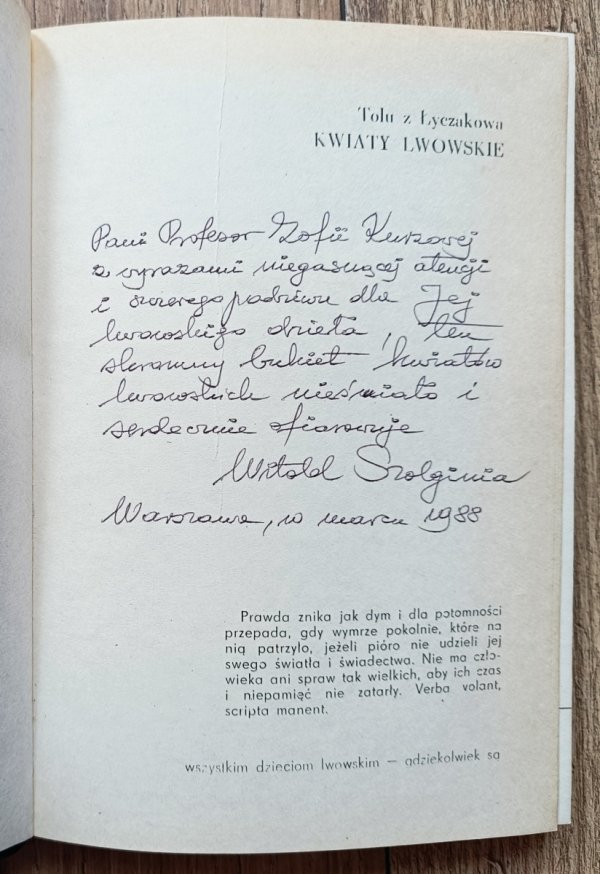 Tolu z Łyczakowa
KWIATY LWOWSKIE
Pani Profesor Zofii Kurzowej
z wyrazami niegasnącej atencji
i szczerego podziwu dla Jej
lwowskiego dzieła, ten
skromny bukiet kwiatów
lwowskich nieśmiało i
serdecznie ofiarowuje
Witold Szolginia
Warszawa, w marcu 1988
Prawda znika jak dym i dla potomności
przepada, gdy wymrze pokolnie, które na
nią patrzyło, jeżeli pióro nie udzieli jej
swego światła i świadectwa. Nie ma czło-
wieka ani spraw tak wielkich, aby ich czas
i niepamięć nie zatarły. Verba volant,
scripta manent.
wszystkim dzieciom lwowskim – gdziekolwiek są